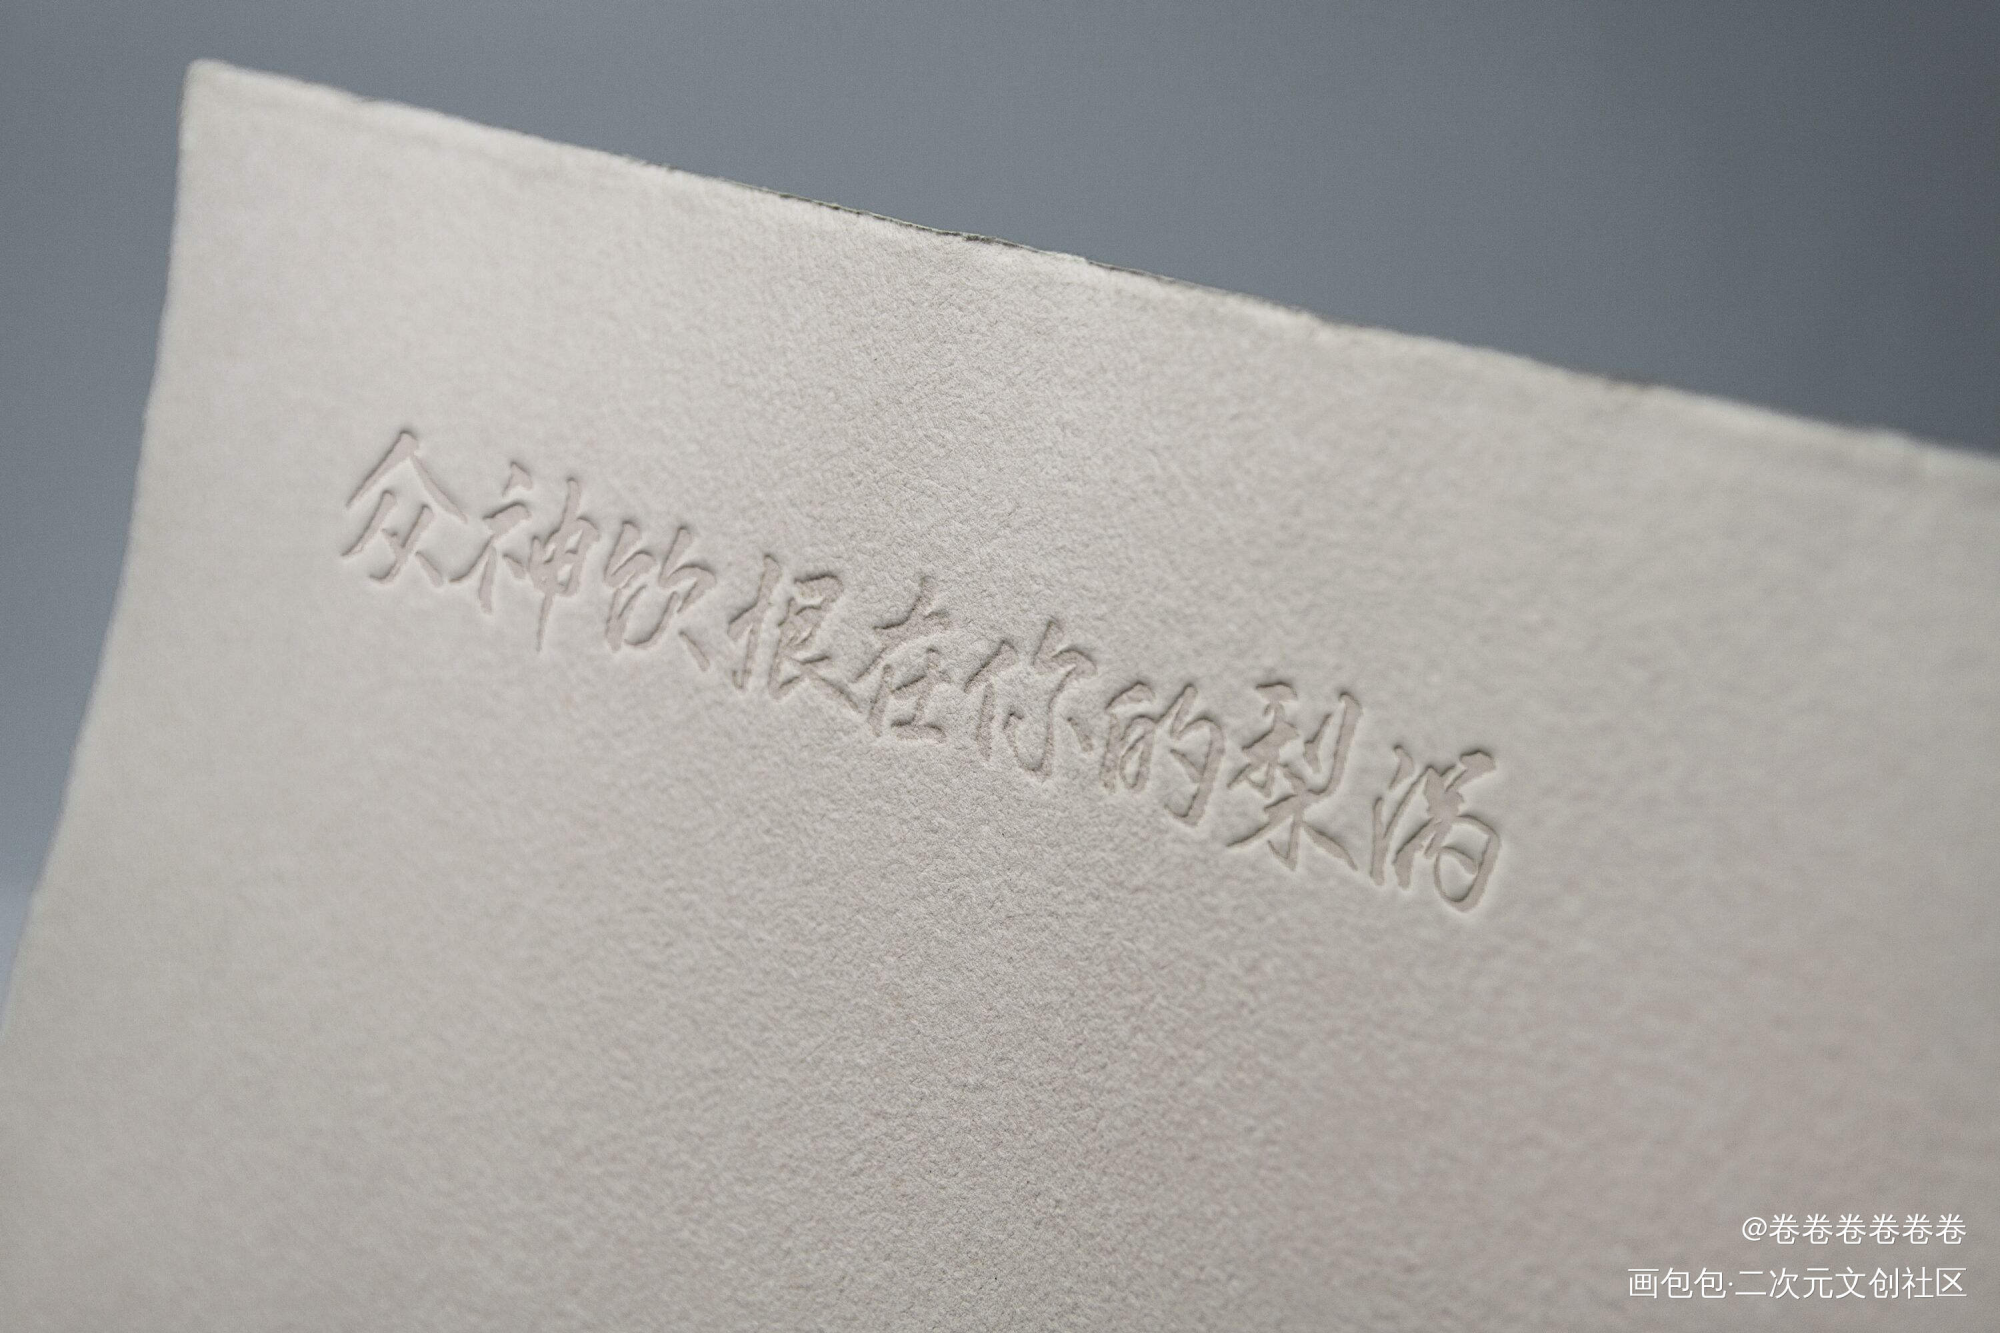 众神饮恨在你的梨涡
@卷卷卷卷卷卷
画包包·二次元文创社区